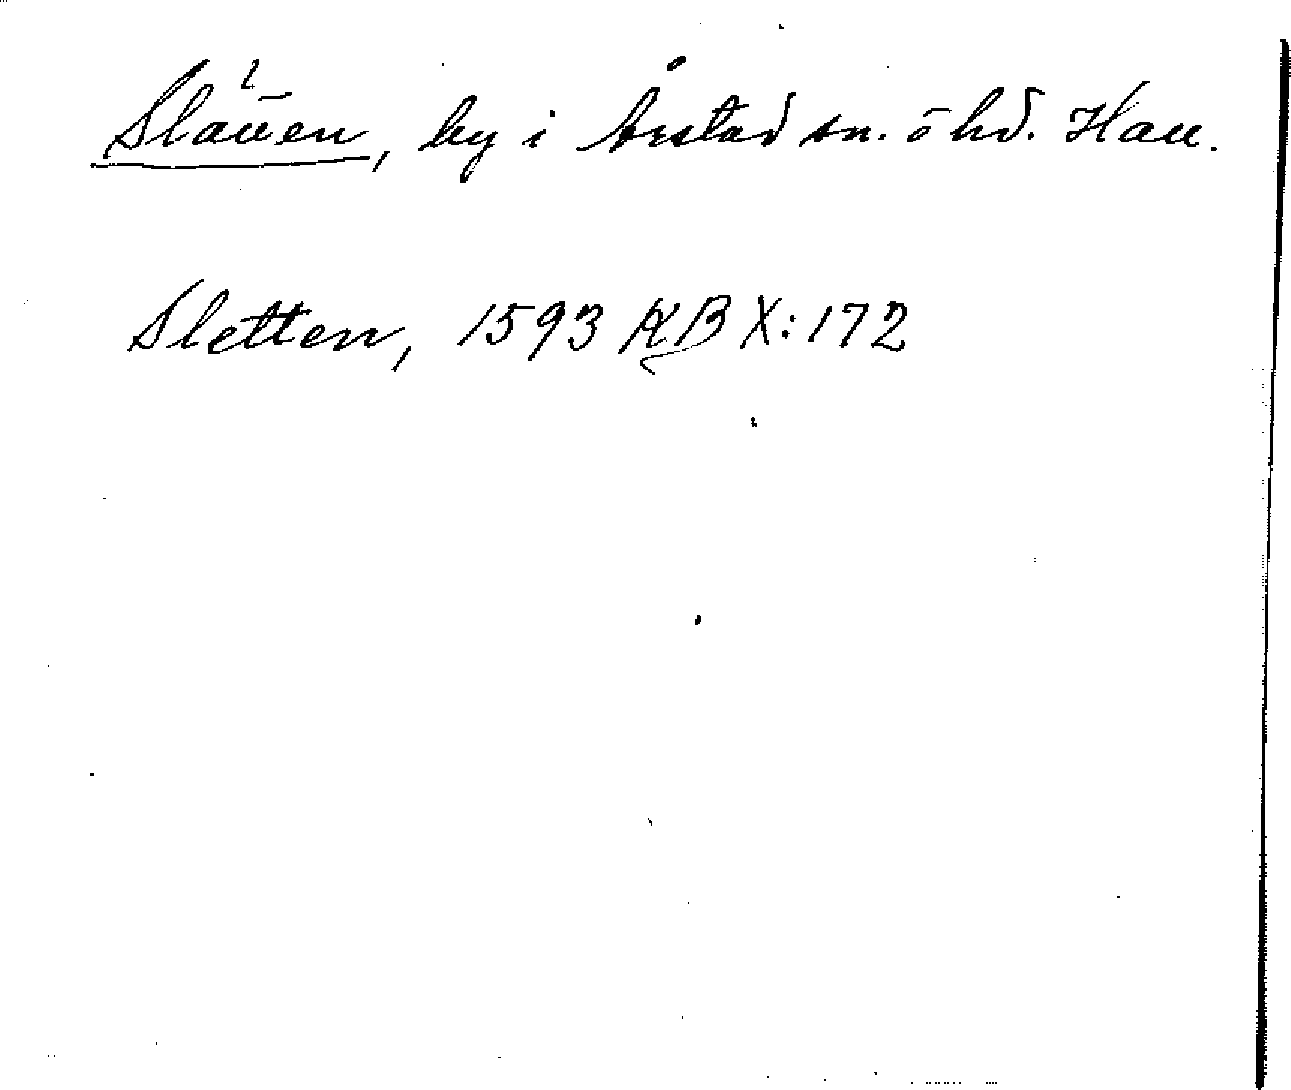 Slätten, by i Årstad sn. o hd. Hall.
Sletten, 1593 KB X:172